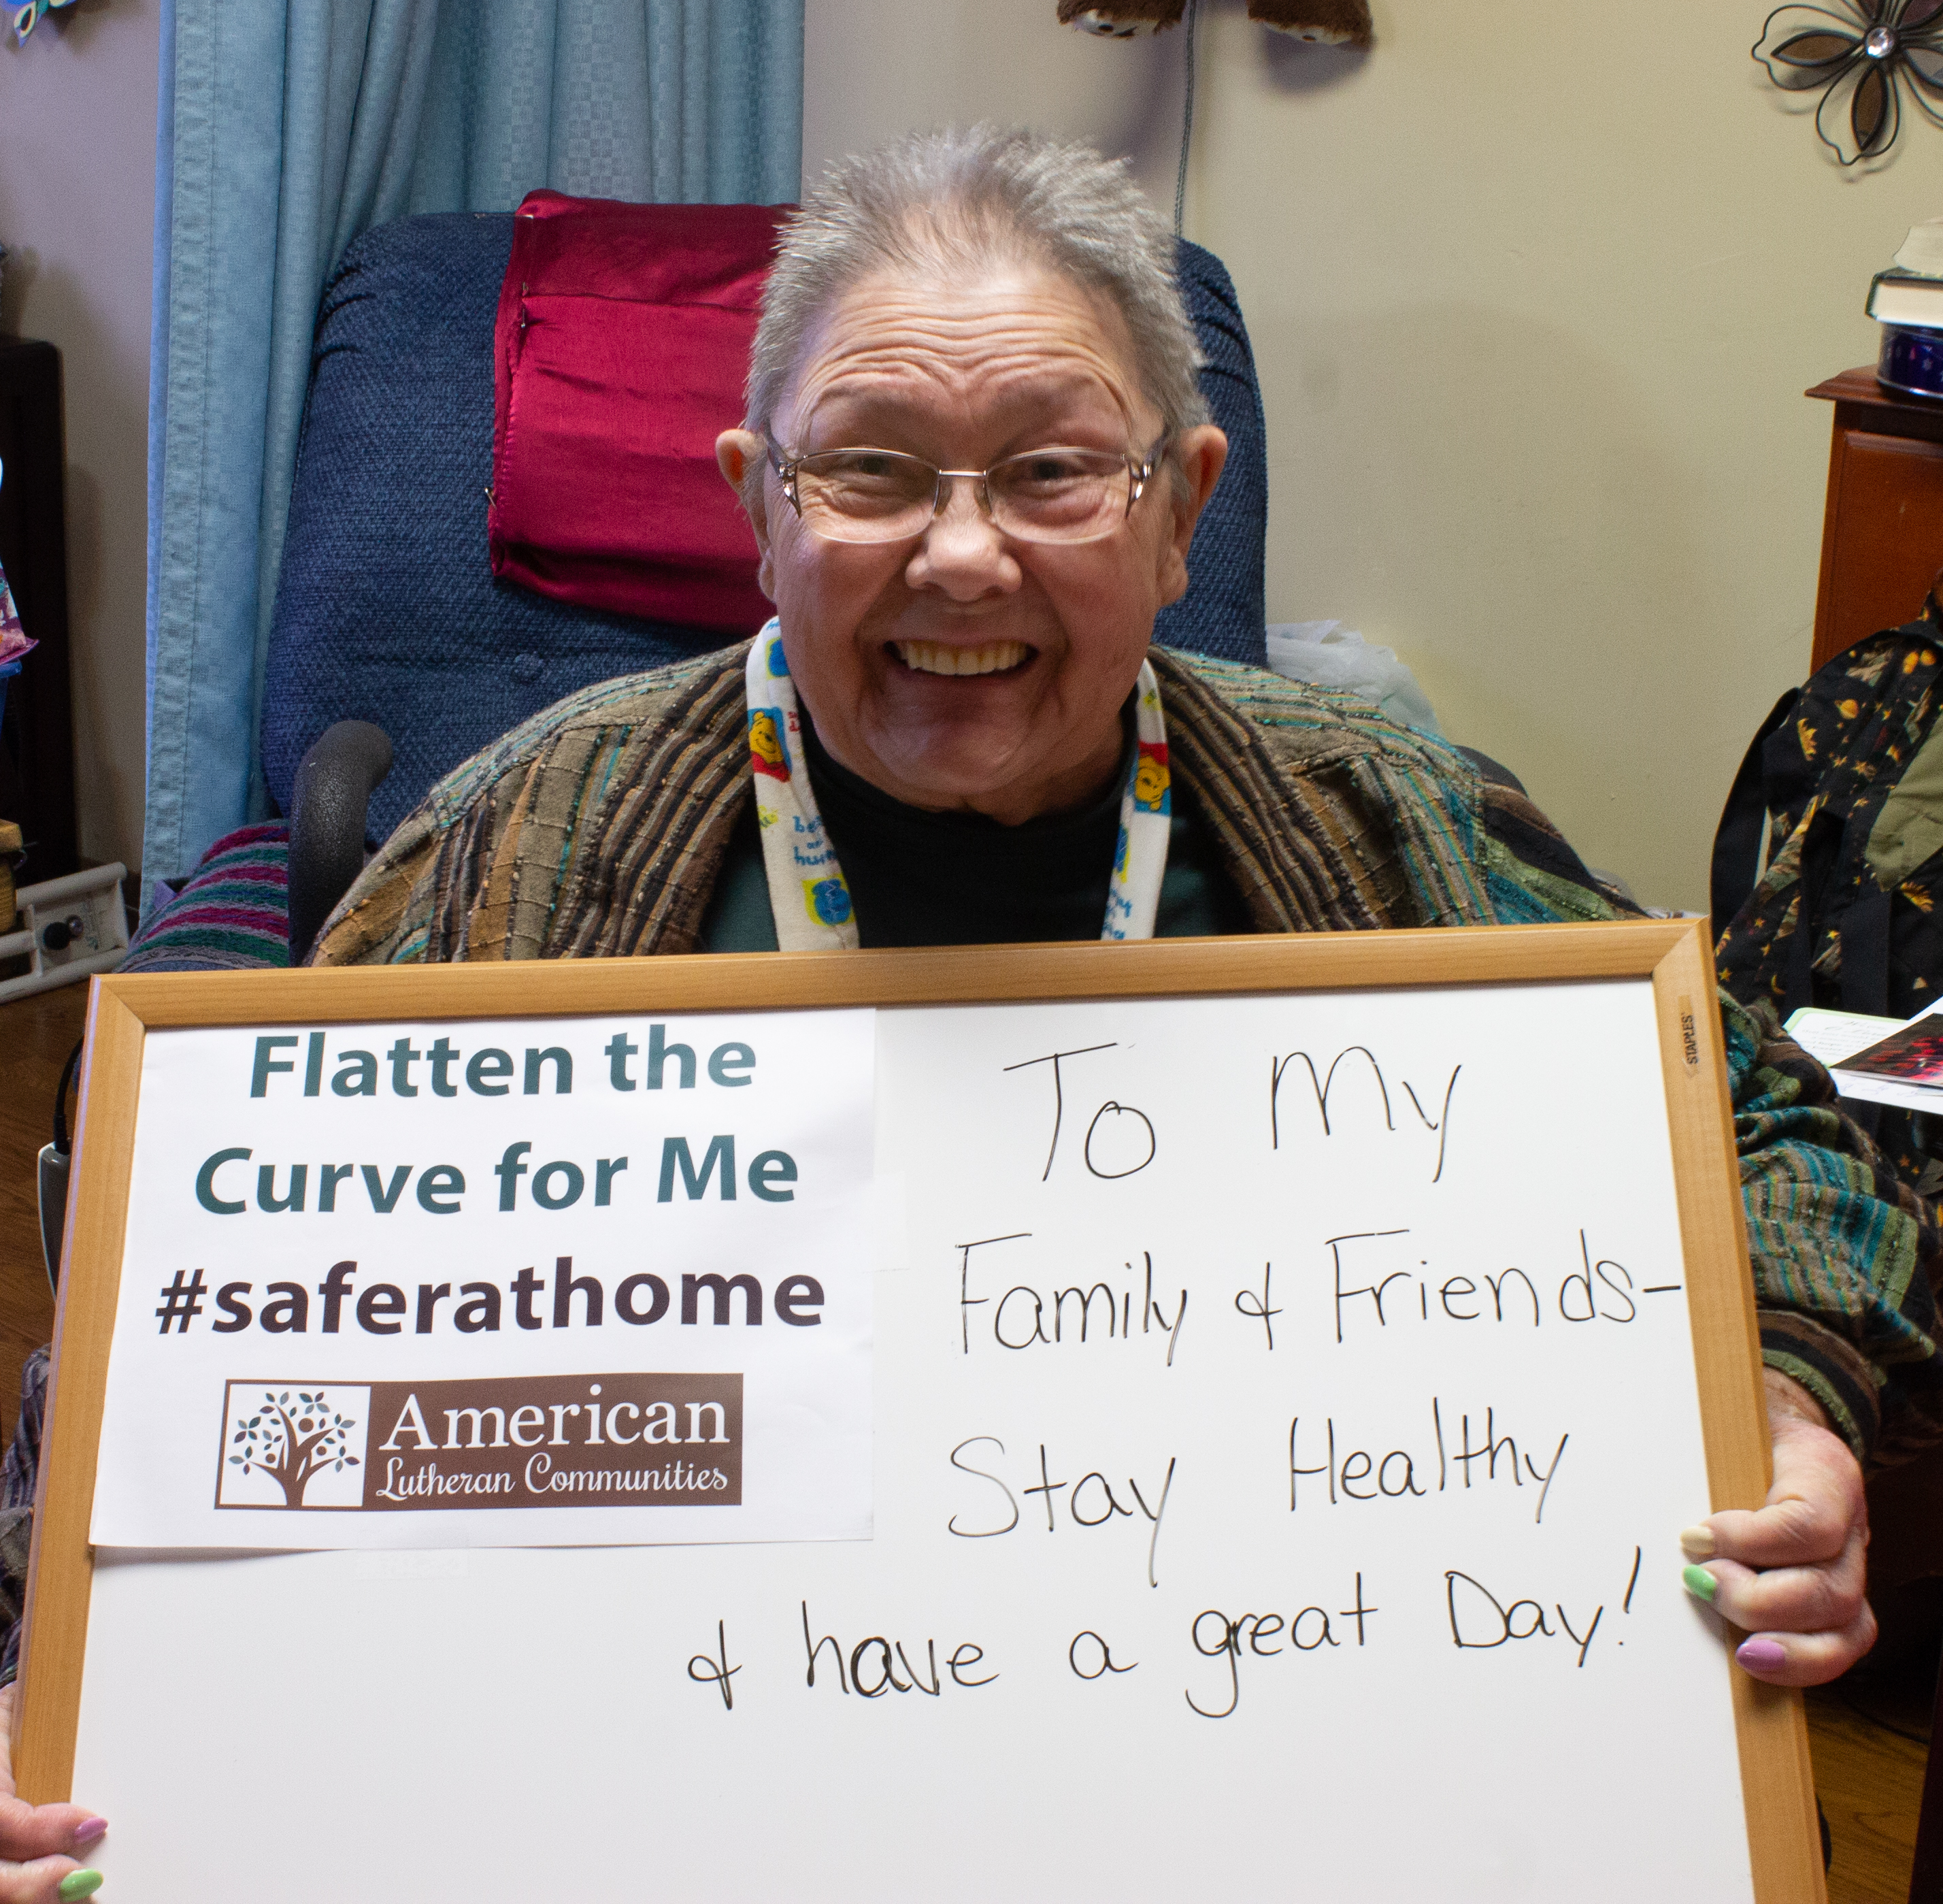 Flatten the
Curve for Me
#saferathome
American
Lutheran Communities
To My
Family & Friends-
Stay Healthy
& have a great Day!
STAPLES